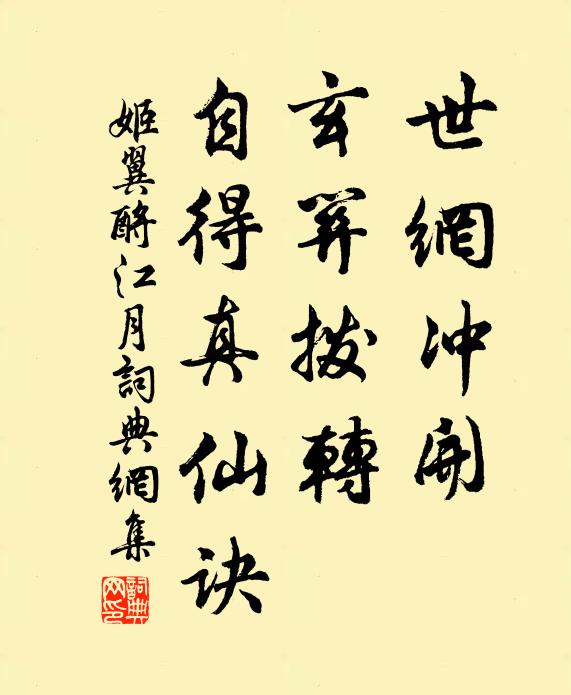 世網冲開
玄關撥轉
自得真仙訣
姬翼酹江月詞典網集
詞典网印